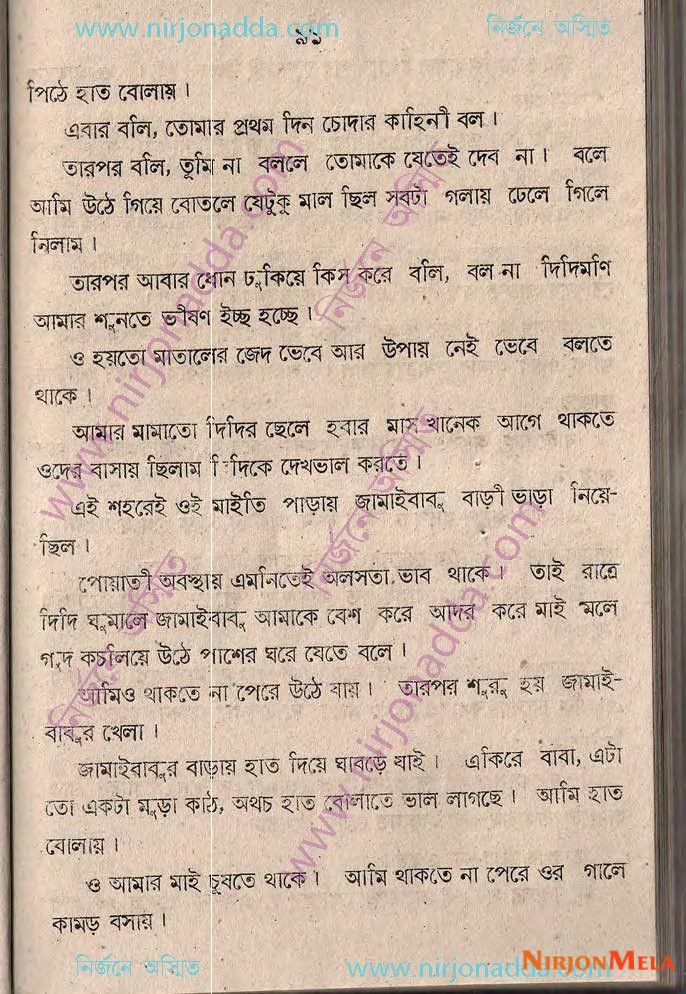 www.nirjonadda.com নির্জনে অস্মিত
৯১
পিঠে হাত বোলায়।
এবার বলি, তোমার প্রথম দিন চোদার কাহিনী বল।
তারপর বলি, তুমি না বললে তোমাকে যেতেই দেব না। বলে
আমি উঠে গিয়ে বোতলে যেটুকু মাল ছিল সবটা গলায় ঢেলে গিলে
নিলাম।
তারপর আবার ধোন ঢুকিয়ে কিস করে বলি, বল না দিদিমণি
আমার শুনতে ভীষণ ইচ্ছ হচ্ছে।
ও হয়তো মাতালের জেদ ভেবে আর উপায় নেই ভেবে বলতে
থাকে।
আমার মামাতো দিদির ছেলে হবার মাস খানেক আগে থাকতে
ওদের বাসায় ছিলাম দিদিকে দেখভাল করতে।
এই শহরেই ওই মাইতি পাড়ায় জামাইবাবু বাড়ী ভাড়া নিয়ে-
ছিল।
পোয়াতী অবস্থায় এমনিতেই অলসতা ভাব থাকে। তাই রাত্রে
দিদি ঘুমালে জামাইবাবু আমাকে বেশ করে আদর করে মাই মলে
গুদ কচলিয়ে উঠে পাশের ঘরে যেতে বলে।
আমিও থাকতে না পেরে উঠে যায়। তারপর শুরু হয় জামাই-
বাবুর খেলা।
জামাইবাবুর বাড়ায় হাত দিয়ে ঘাবড়ে যাই। একিরে বাবা, এটা
তো একটা মুড়া কাঠ, অথচ হাত বোলাতে ভাল লাগছে। আমি হাত
বোলায়।
ও আমার মাই চুষতে থাকে। আমি থাকতে না পেরে ওর গালে
কামড় বসায়।
www.nirjonadda.com
নির্জনে অস্মিত
www.nirjonadda.com
নির্জনে অস্মিত
নির্জনে অস্মিত
নির্জনে অস্মিত www.nirjonadda.com
NIRJONMELA